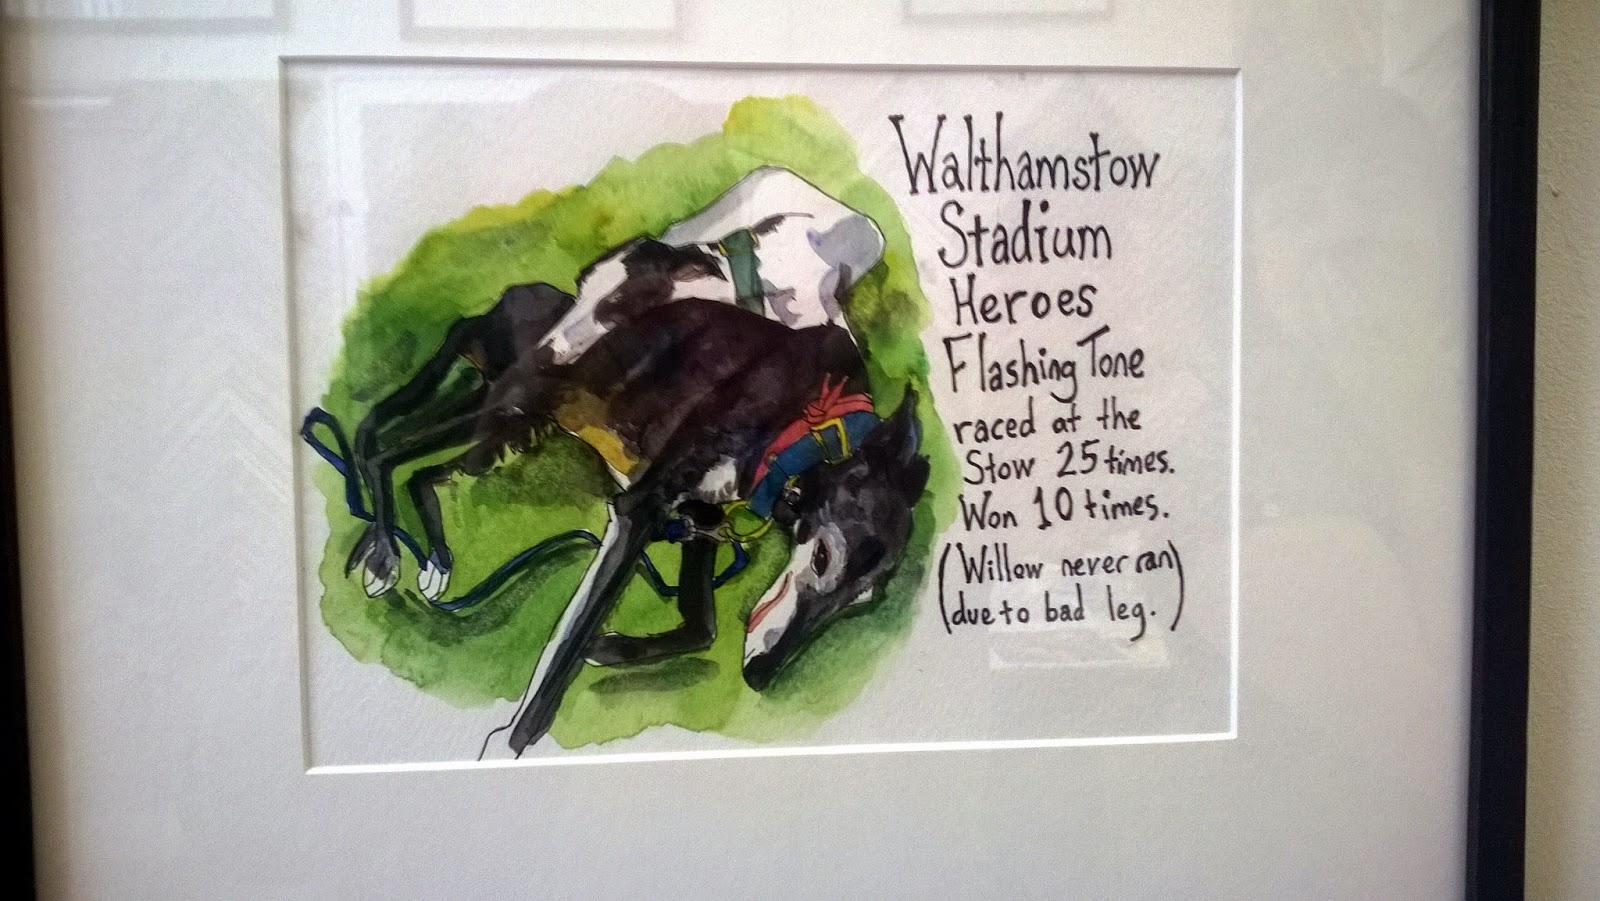 Walthamstow
Stadium
Heroes
Flashing Tone
raced at the
Stow 25 times.
Won 10 times.
(Willow never ran)
(due to bad leg.)